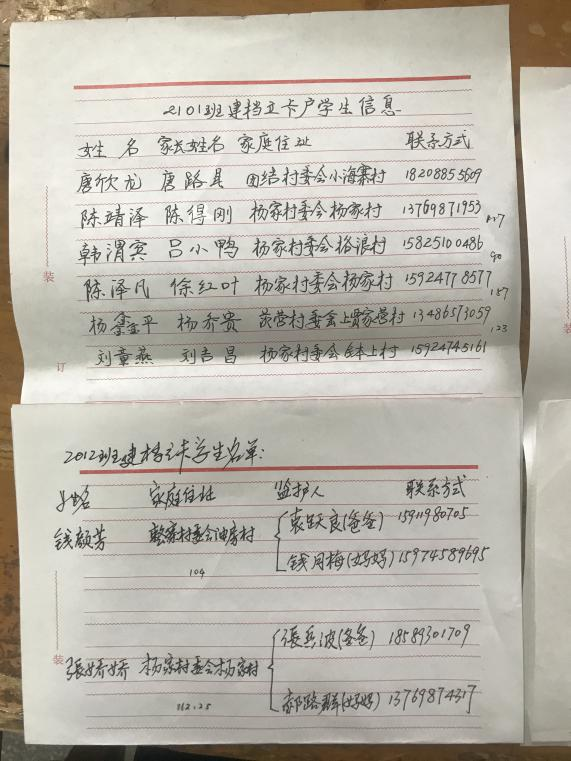 2101班建档立卡户学生信息
姓 名 家长姓名 家庭住址 联系方式
唐欣龙 唐路昆 团结村委会小海寨村 18208855609
陈靖泽 陈得刚 杨家村委会杨家村 13769871953
韩渭宾 吕小鸭 杨家村委会格浪村 15825100486
90
陈泽凡 徐红叶 杨家村委会杨家村 15924778577
187
杨鑫平 杨乔贵 茨营村委会上贾家营村 13486573059
123
刘童燕 刘吉昌 杨家村委会 本上村 15924745161
装
订
装
2012班建档立卡学生名单:
姓名 家庭住址 监护人 联系方式
钱颜芳 整寨村委会油房村 袁跃良(爸爸) 15911980705
钱同梅(妈妈) 15974589695
104
装
張娇娇 杨家村委会杨家村 張兵波(爸爸) 18589301709
路群(妈妈) 13769874317
112.25